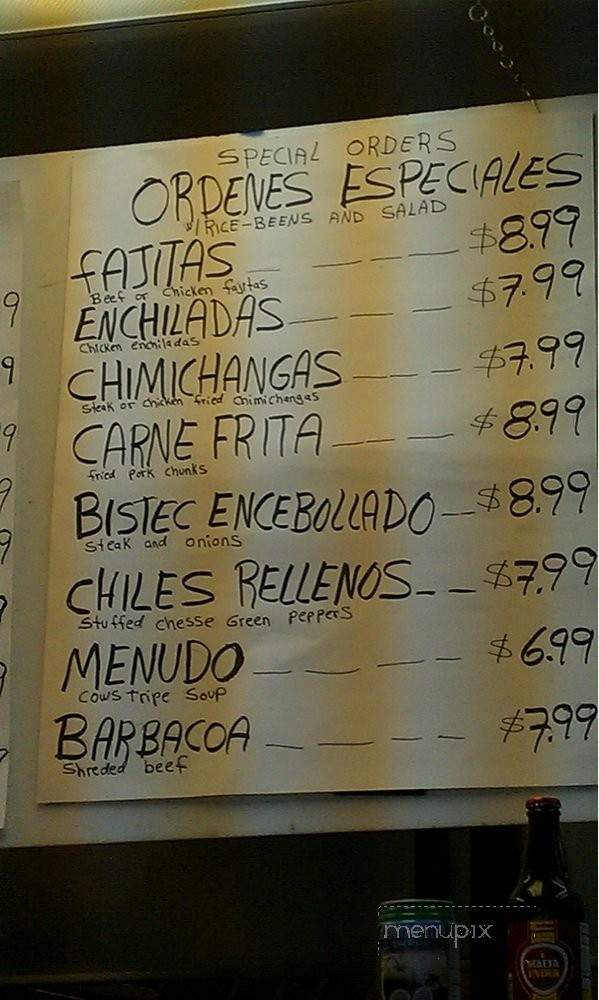 SPECIAL ORDERS
ORDENES ESPECIALES
W/RICE-BEENS AND SALAD
FAJITAS $8.99
Beef or Chicken fajitas
ENCHILADAS $7.99
Chicken enchiladas
CHIMICHANGAS $7.99
Steak or Chicken fried Chimichangas
CARNE FRITA $8.99
fried Pork Chunks
BISTEC ENCEBOLLADO $8.99
Steak and onions
CHILES RELLENOS $7.99
Stuffed chesse Green peppers
MENUDO $6.99
Cows Tripe Soup
BARBACOA $7.99
Shreded beef
9
9
9
9
9
menupix
MALTA
INDIA